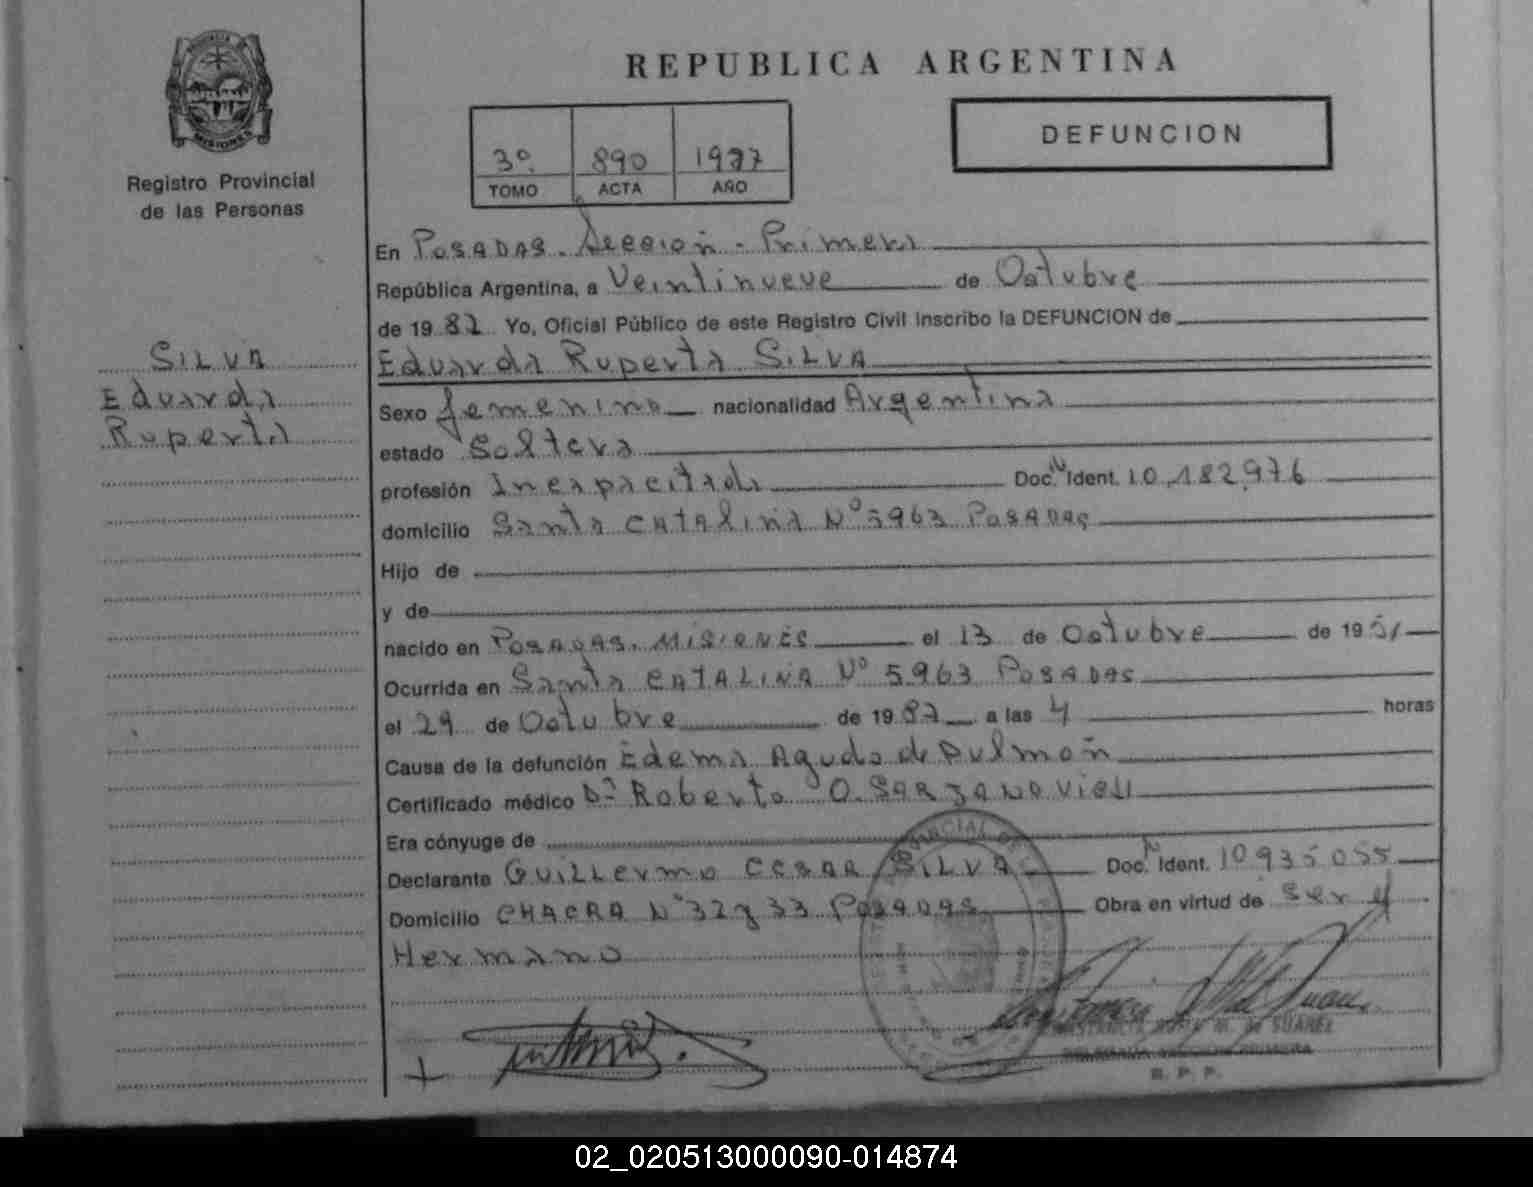 REPUBLICA ARGENTINA
PROVINCIA DE
MISIONES
Registro Provincial
de las Personas
3º 890
TOMO ACTA AÑO
DEFUNCION
En POSADAS. Sección - Primera
República Argentina, a Veintinueve de Octubre
de 19 87 Yo, Oficial Público de este Registro Civil inscribo la DEFUNCION de
SILVA
Eduarda
Ruperta
Eduarda Ruperta SILVA
Sexo femenino nacionalidad Argentina
estado Soltera
profesión Incapacitada Doc. N Ident. 10.182.976
domicilio Santa CATALINA Nº 5963 POSADAS
Hijo de
y de
nacido en POSADAS. MISIONES el 13 de Octubre de 19 51
Ocurrida en Santa CATALINA Nº 5963 POSADAS
el 29 de Octubre de 19 87 a las 4 horas
Causa de la defunción Edema Agudo de Pulmón
Certificado médico Dr Roberto O.
Era cónyuge de
Declarante GUILLERMO CESAR SILVA Doc. N Ident. 10935055
Domicilio CHACRA Nº 32 y 33 POSADAS Obra en virtud de ser el
Hermano
M. de SUAREZ
DELEGADA SECCION PRIMERA
R. P. P.
02_020513000090-014874